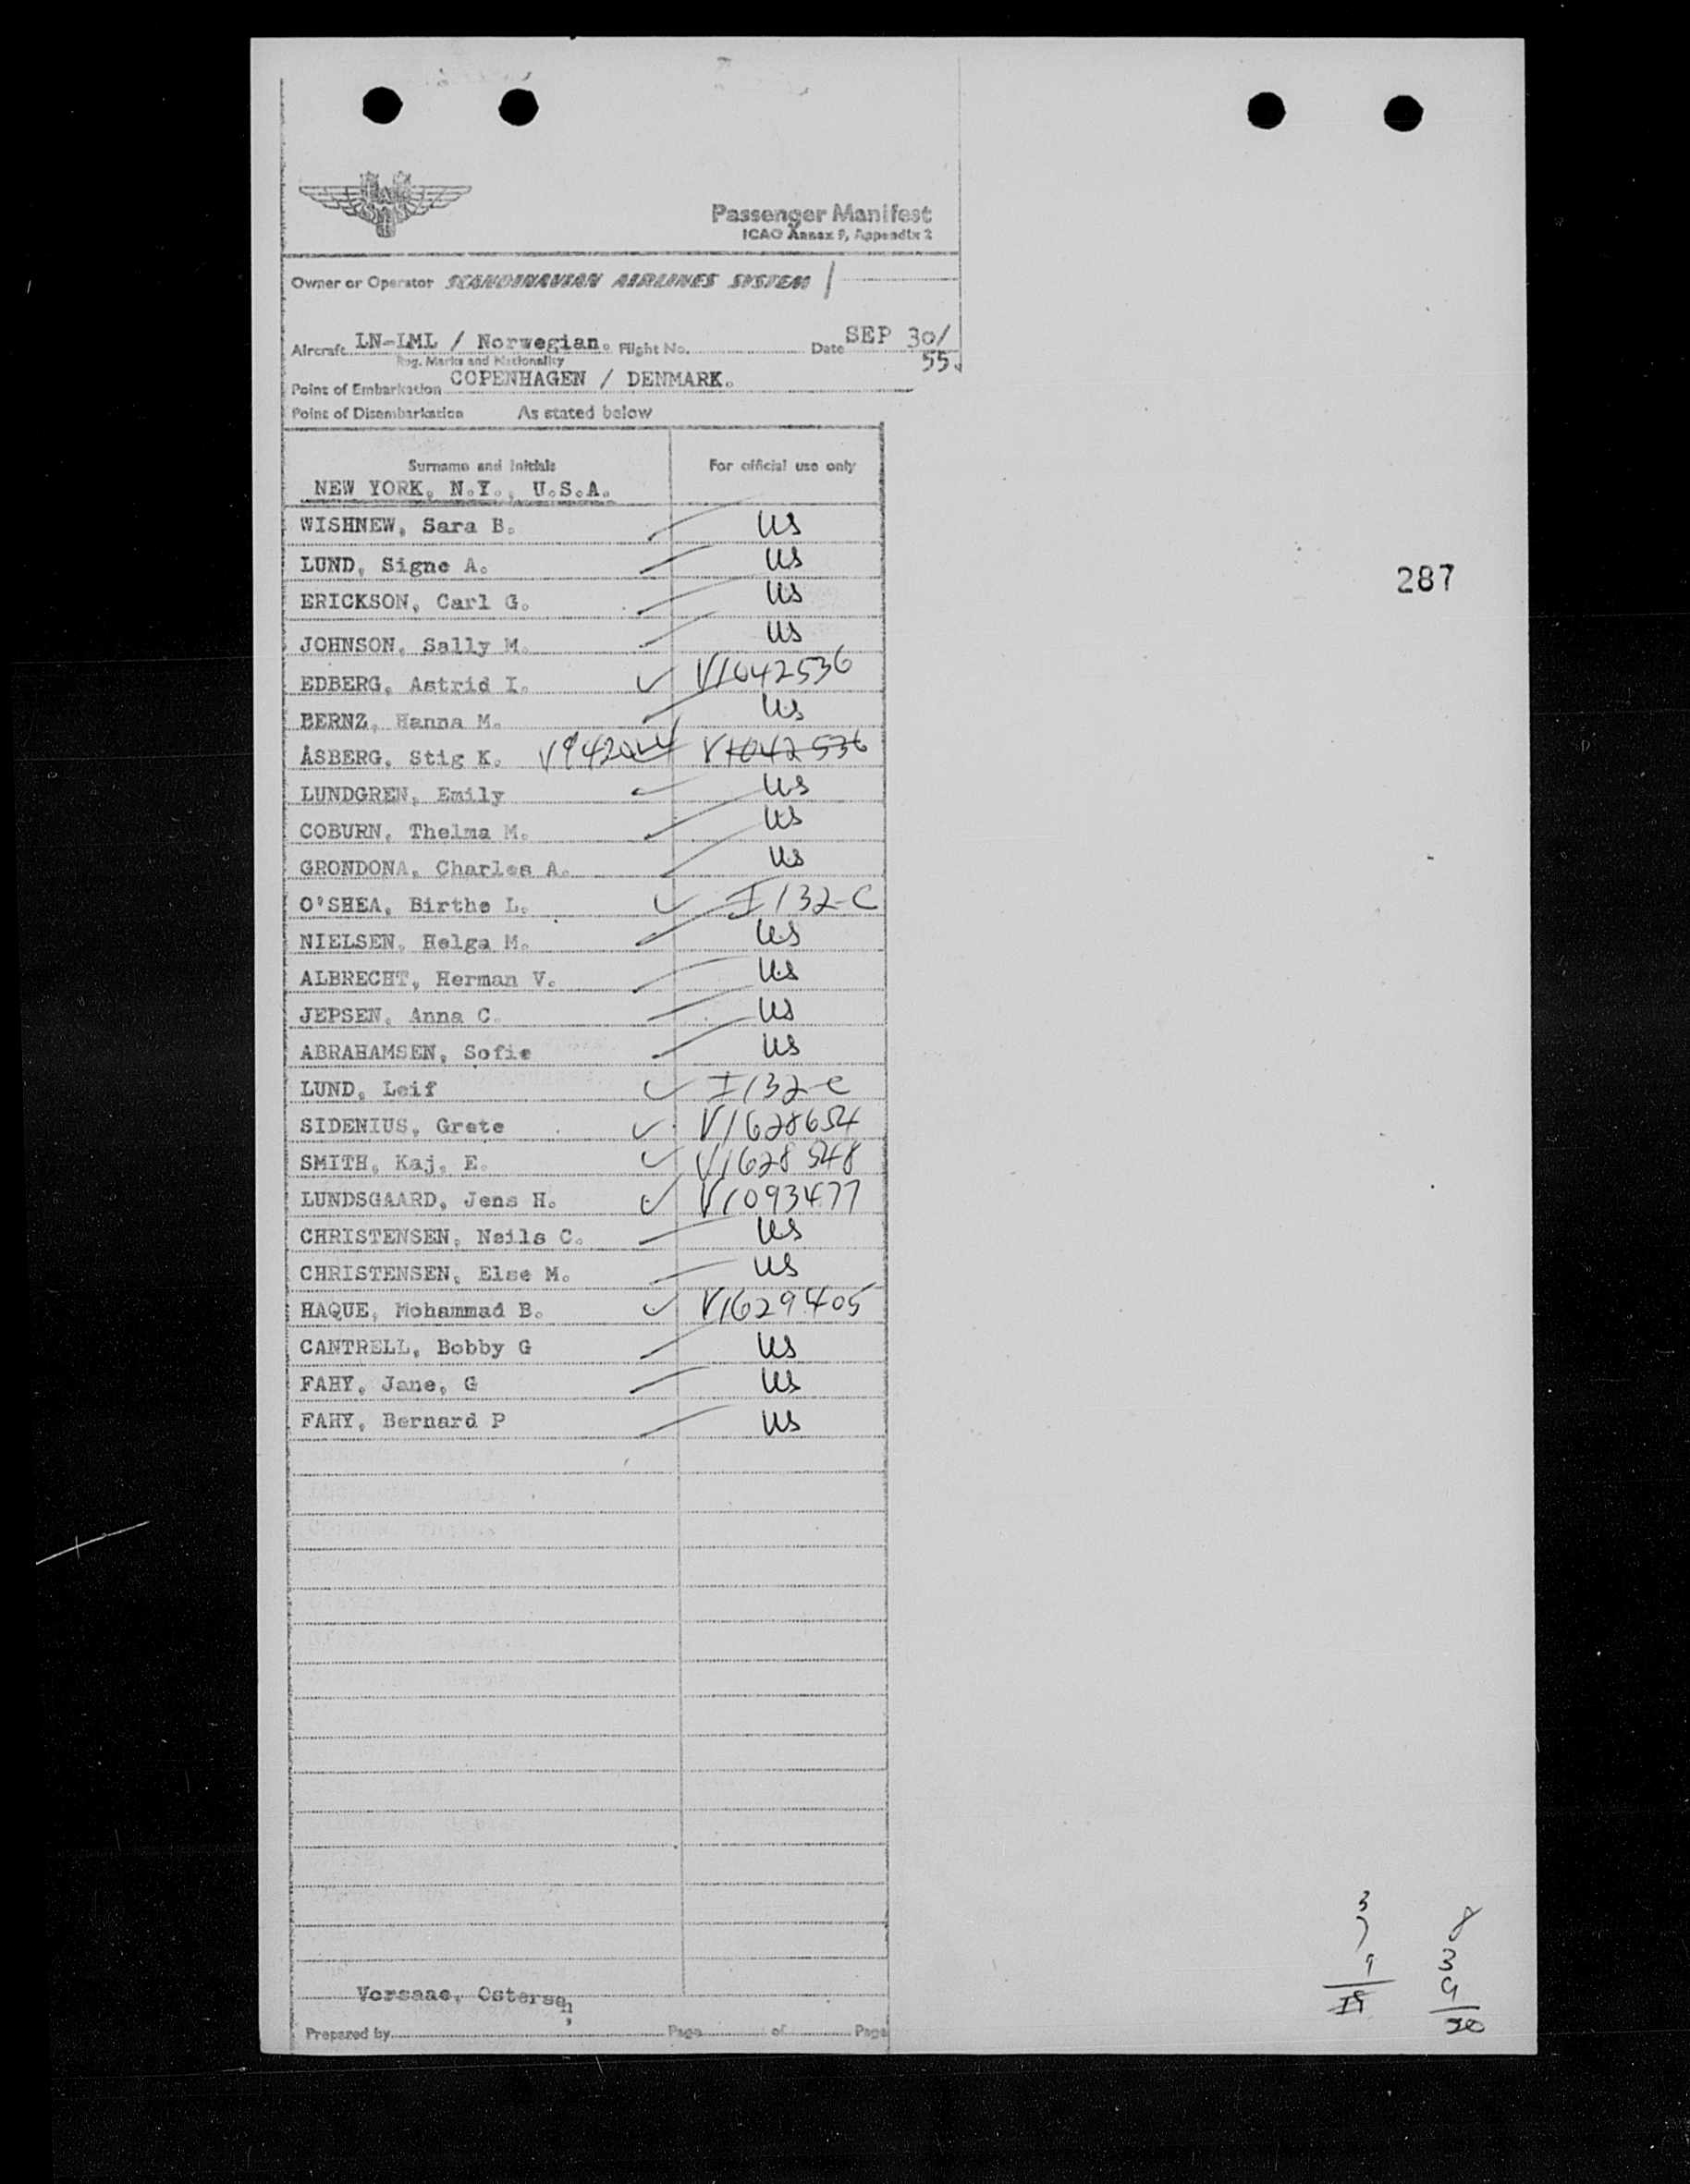 Passenger Manifest
ICAO Annex 9, Appendix 2
Owner or Operator SCANDINAVIAN AIRLINES SYSTEM
Aircraft LN-LML / Norwegian. Flight No. Date SEP 30/
Reg. Marks and Nationality 55.
Point of Embarkation COPENHAGEN / DENMARK.
Point of Disembarkation As stated below
Surname and Initials For official use only
NEW YORK, N.Y., U.S.A.
WISHNEW, Sara B. US
LUND, Signe A. US
287
ERICKSON, Carl G. US
JOHNSON, Sally M. US
EDBERG, Astrid I. V1042536
BERNZ, Hanna M. US
ÅSBERG, Stig K. V1042536
LUNDGREN, Emily US
COBURN, Thelma M. US
GRONDONA, Charles A. US
O'SHEA, Birthe L. I132-C
NIELSEN, Helga M. US
ALBRECHT, Herman V. US
JEPSEN, Anna C. US
ABRAHAMSEN, Sofie US
LUND, Leif I132-C
SIDENIUS, Grete V1628654
SMITH, Kaj, E. V1628548
LUNDSGAARD, Jens H. V1093477
CHRISTENSEN, Neils C. US
CHRISTENSEN, Else M. US
HAQUE, Mohammad B. V1629405
CANTRELL, Bobby G US
FAHY, Jane, G US
FAHY, Bernard P US
3 8
7 3
9 9
19 20
Vorsaae, Ostersen,
Prepared by Page of Page